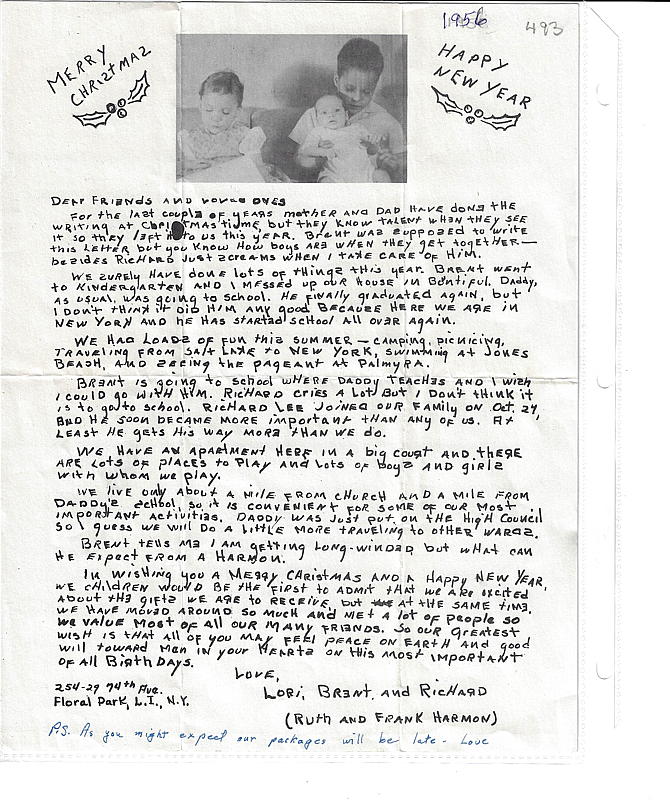 1956
493
MERRY
CHRISTMAS
HAPPY
NEW YEAR
DEAR FRIENDS AND LOVED ONES
For the last couple of years mother and Dad have done the
writing at Christmas time, but they know talent when they see
it so they left it to us this year. Brent was supposed to write
this letter but you know how boys are when they get together—
besides Richard just screams when I take care of him.
We surely have done lots of things this year. Brent went
to Kindergarten and I messed up our house in Bontiful. Daddy,
as usual, was going to school. He finally graduated again, but
I don't think it did him any good because here we are in
New York and he has started school all over again.
We had loads of fun this summer — camping, picnicing,
traveling from Salt Lake to New York, swimming at Jones
Beach, and seeing the pageant at Palmyra.
Brent is going to school where Daddy teaches and I wish
I could go with him. Richard cries a lot but I don't think it
is to go to school. Richard Lee joined our family on Oct. 27,
and he soon became more important than any of us. At
least he gets his way more than we do.
We have an apartment here in a big court and there
are lots of places to play and lots of boys and girls
with whom we play.
We live only about a mile from church and a mile from
Daddy's school, so it is convenient for some of our most
important activities. Daddy was just put on the High Council
so I guess we will do a little more traveling to other wards.
Brent tells me I am getting long-winded, but what can
he expect from a Harmon.
In wishing you a Merry Christmas and a Happy New Year,
we children would be the first to admit that we are excited
about the gifts we are to receive but at the same time,
we have moved around so much and met a lot of people so
we value most of all our many friends. So our greatest
wish is that all of you may feel peace on earth and good
will toward men in your hearts on this most important
of all Birthdays.
Love,
Lori, Brent, and Richard
(Ruth and Frank Harmon)
254-29 74th Ave.
Floral Park, L.I., N.Y.
P.S. As you might expect our packages will be late - Love